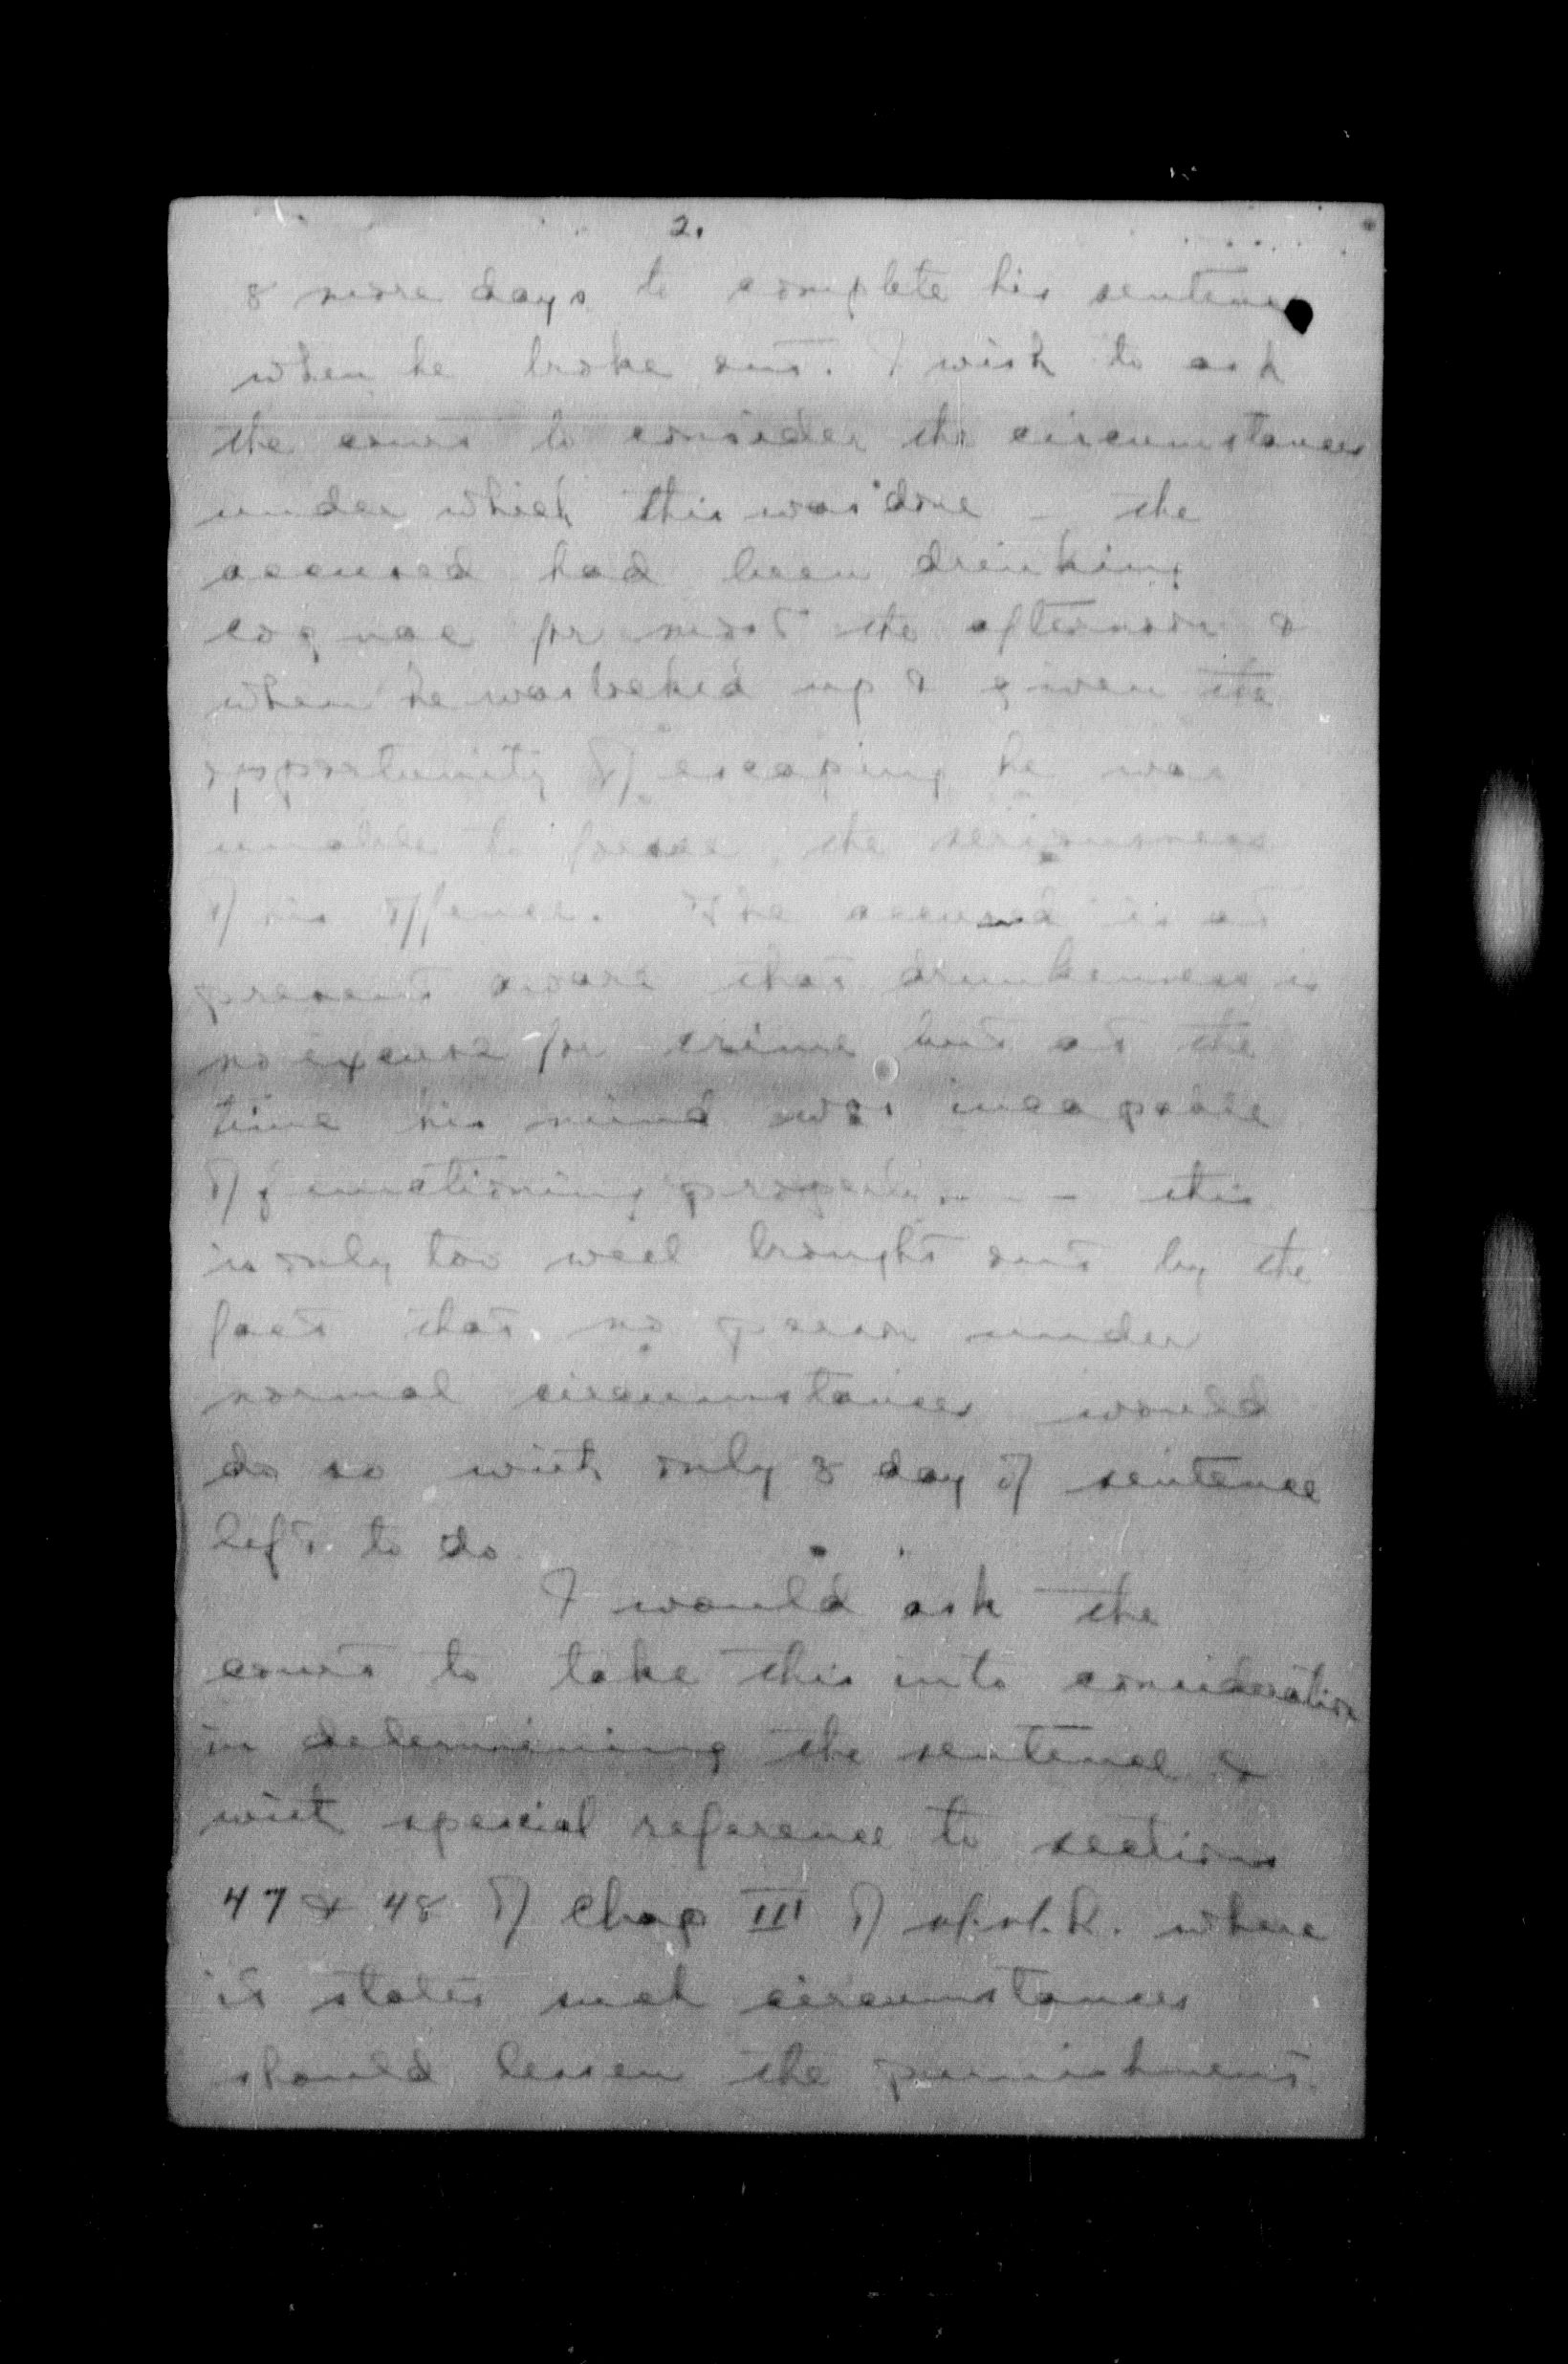 2.
8 more days to complete his sentence
when he broke out. I wish to ask
the court to consider the circumstances
under which this was done - the
accused had been drinking
cognac for most the afternoon &
when he was up & given the
opportunity of escaping he was
unable to forsee the seriousness
of his offence. The accused is at
present aware that drunkenness is
no excuse for crime but at the
time his mind was incapable
of functioning properly - - - this
is only too well brought out by the
fact that no person under
normal circumstances would
do so with only 8 day of sentence
left to do
I would ask the
court to take this into consideration
in determining the sentence &
with special reference to sections
47 & 48 of Chap III of where
it states such circumstances
should lessen the punishment.